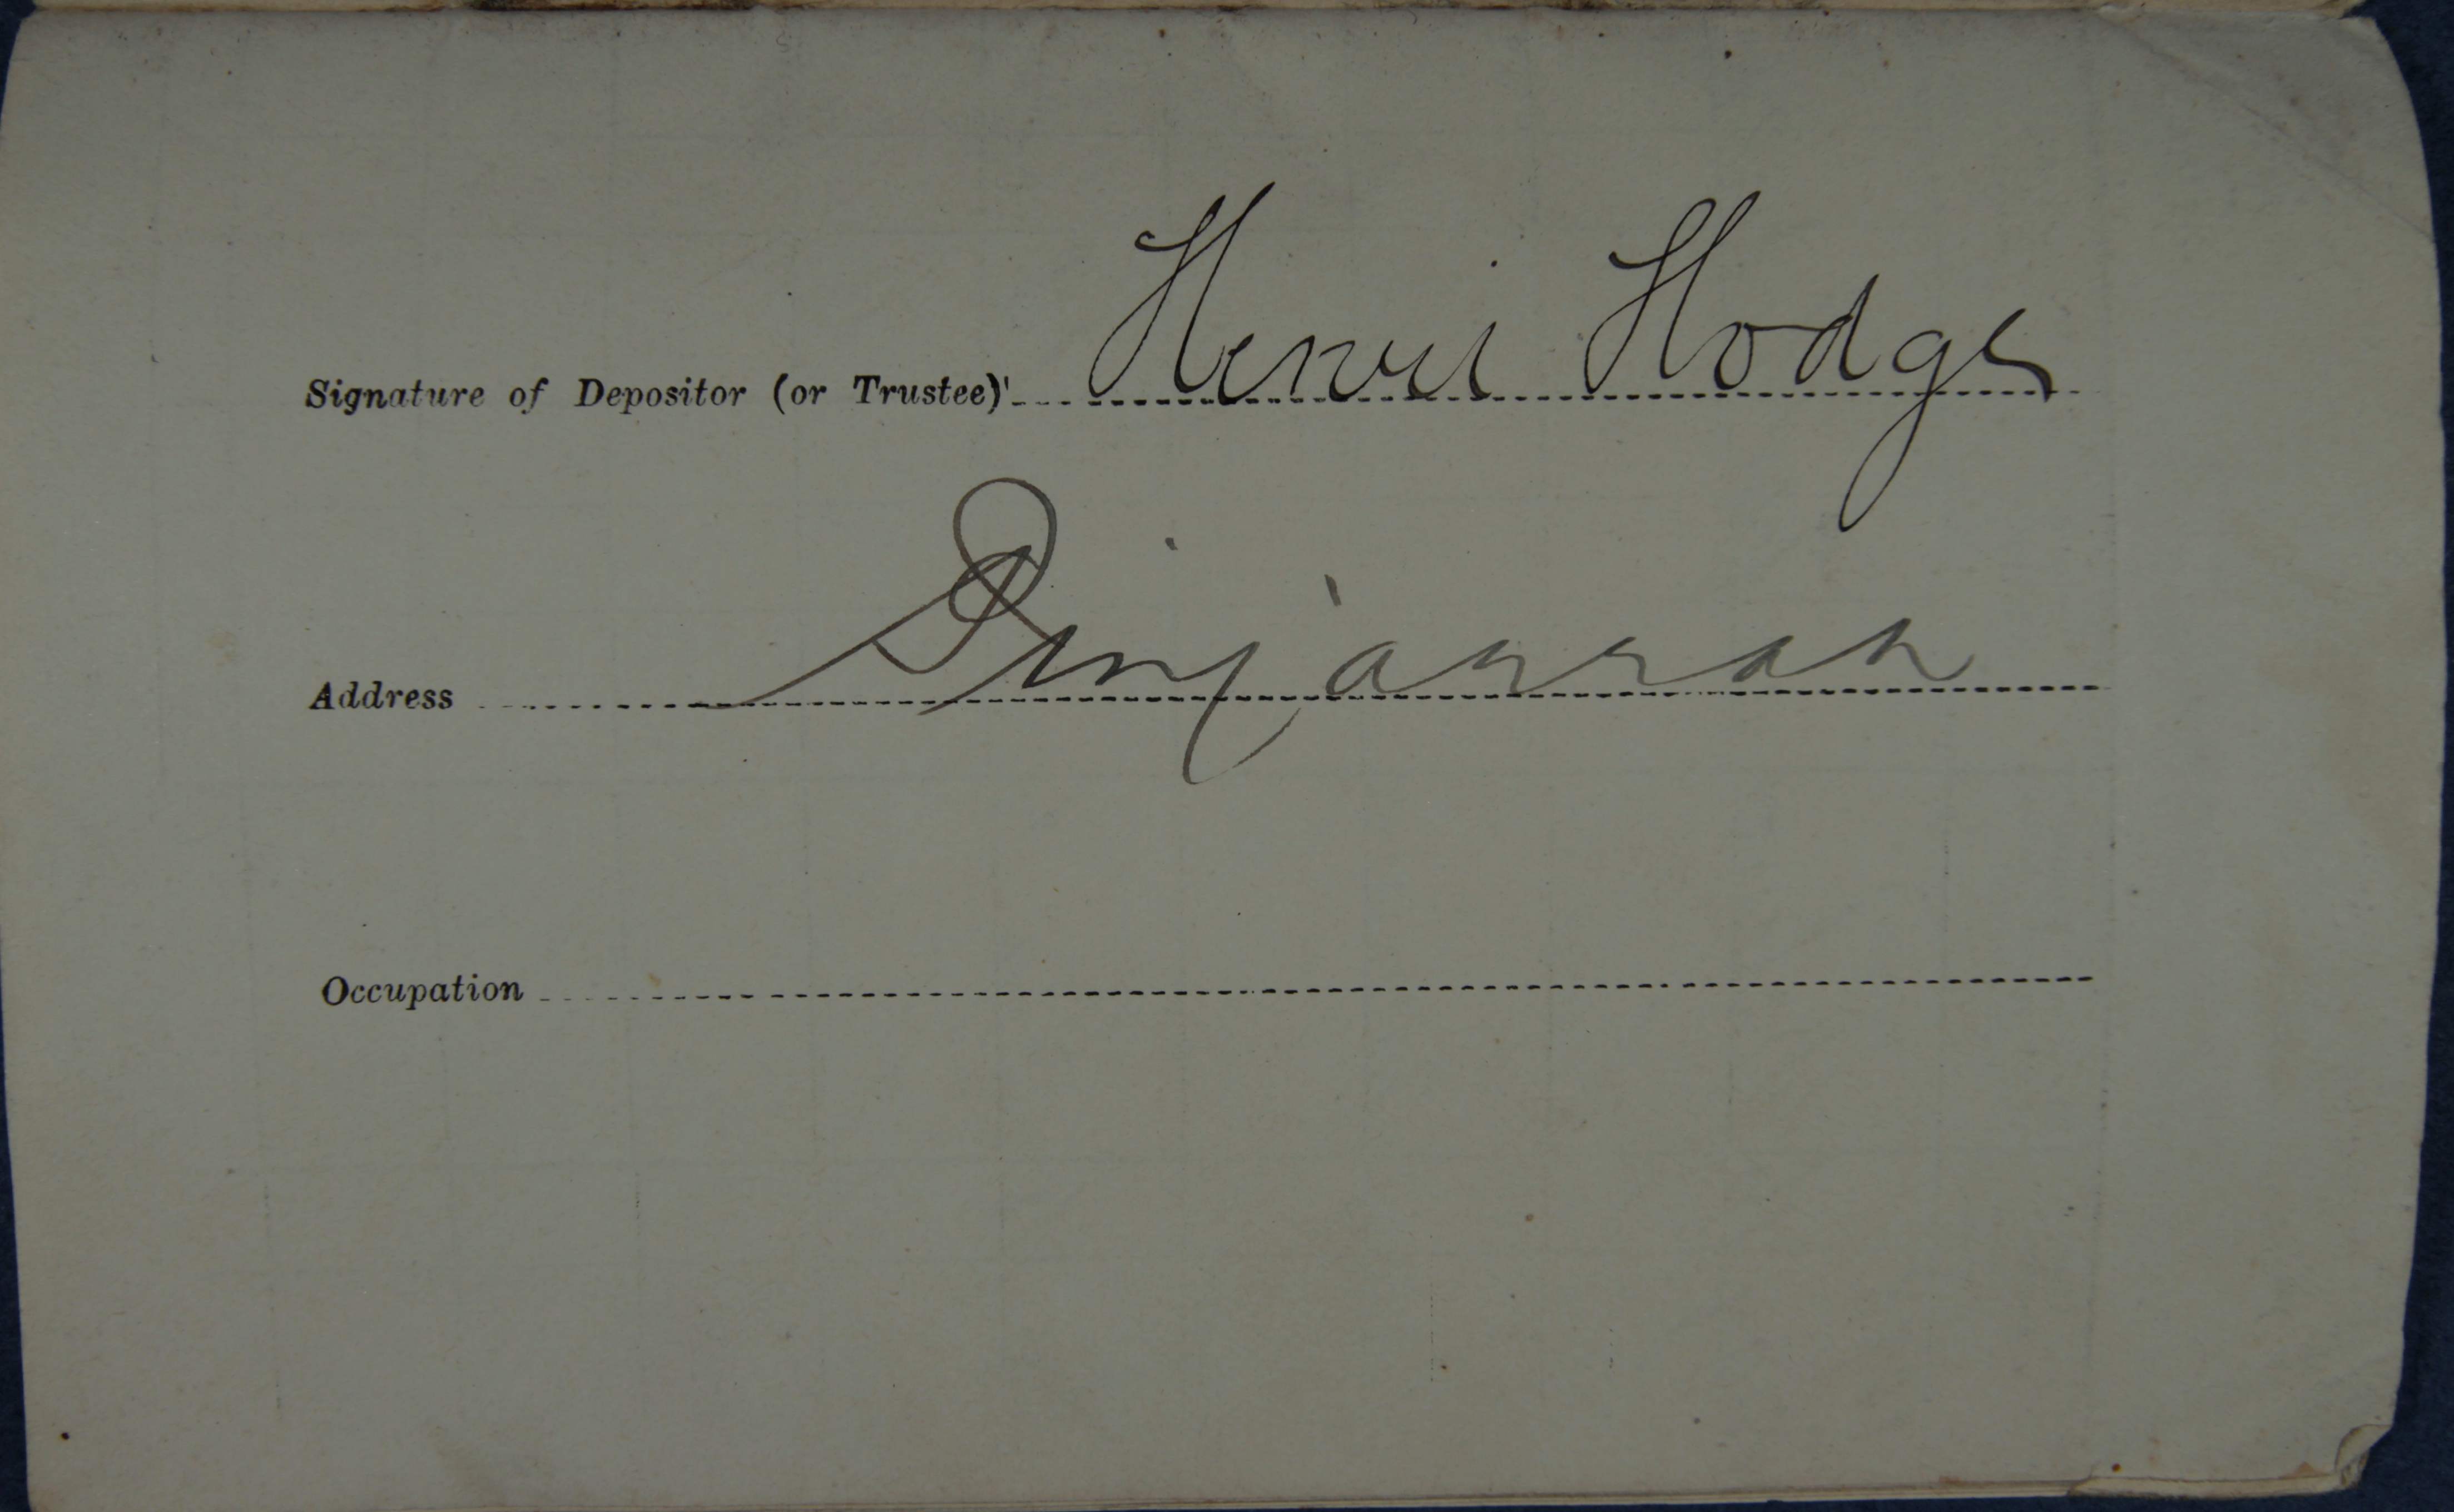 Signature of Depositor (or Trustee) Henri Hodge
Address Dinjarrah
Occupation